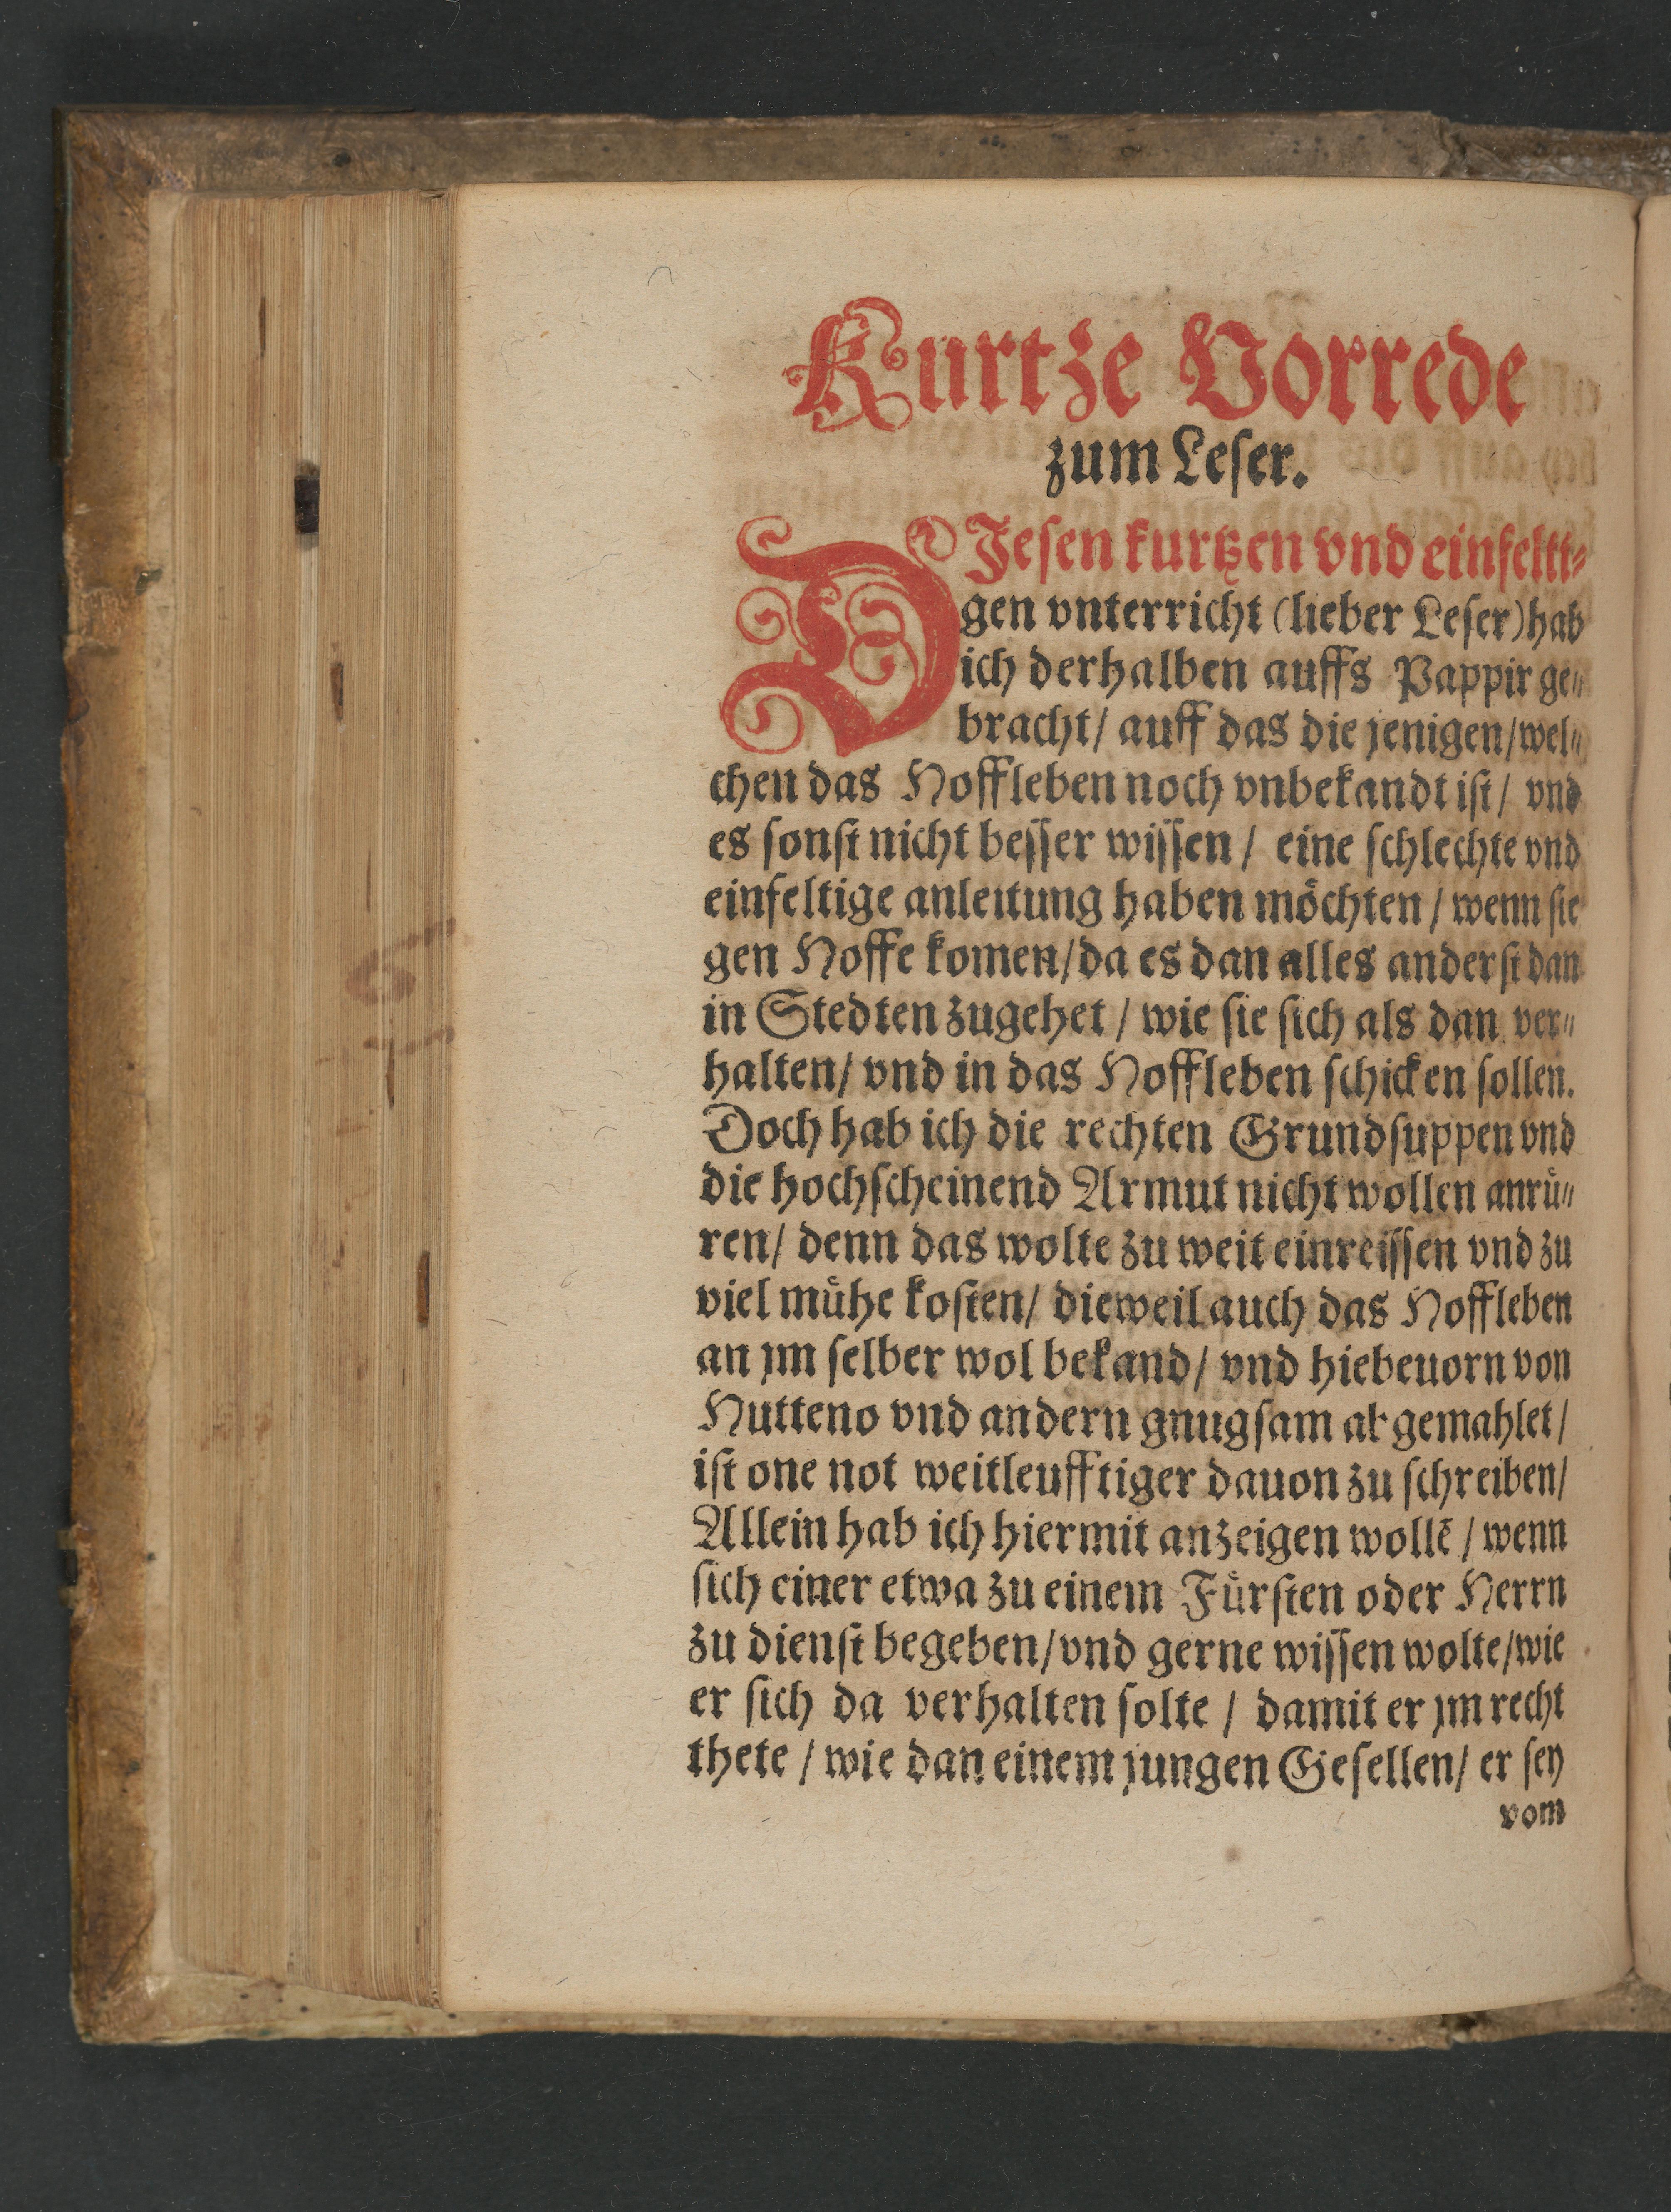 Kurtze Vorrede
zum Leſer.
DIeſen kurtzen vnd einfelti⸗
gen vnterricht (lieber Leſer) hab
ich derhalben auffs Pappir ge⸗
bracht/ auff das die jenigen/ wel⸗
chen das Hoffleben noch vnbekandt iſt/ vnd
es ſonſt nicht beſſer wiſſen / eine ſchlechte vnd
einfeltige anleitung haben moͤchten / wenn ſie
gen Hoffe komen/ da es dan alles anderſt dan
in Stedten zugehet / wie ſie ſich als dan ver⸗
halten/ vnd in das Hoffleben ſchicken ſollen.
Doch hab ich die rechten Grundſuppen vnd
die hochſcheinend Armut nicht wollen anruͤ⸗
ren/ denn das wolte zu weit einreiſſen vnd zu
viel muͤhe koſten/ dieweil auch das Hoffleben
an jm ſelber wol bekand/ vnd hiebeuorn von
Hutteno vnd andern gnugſam abgemahlet/
iſt one not weitleufftiger dauon zu ſchreiben/
Allein hab ich hiermit anzeigen wollē / wenn
ſich einer etwa zu einem Fuͤrſten oder Herrn
zu dienſt begeben/ vnd gerne wiſſen wolte/ wie
er ſich da verhalten ſolte / damit er jm recht
thete / wie dan einem jungen Geſellen/ er ſey
vom